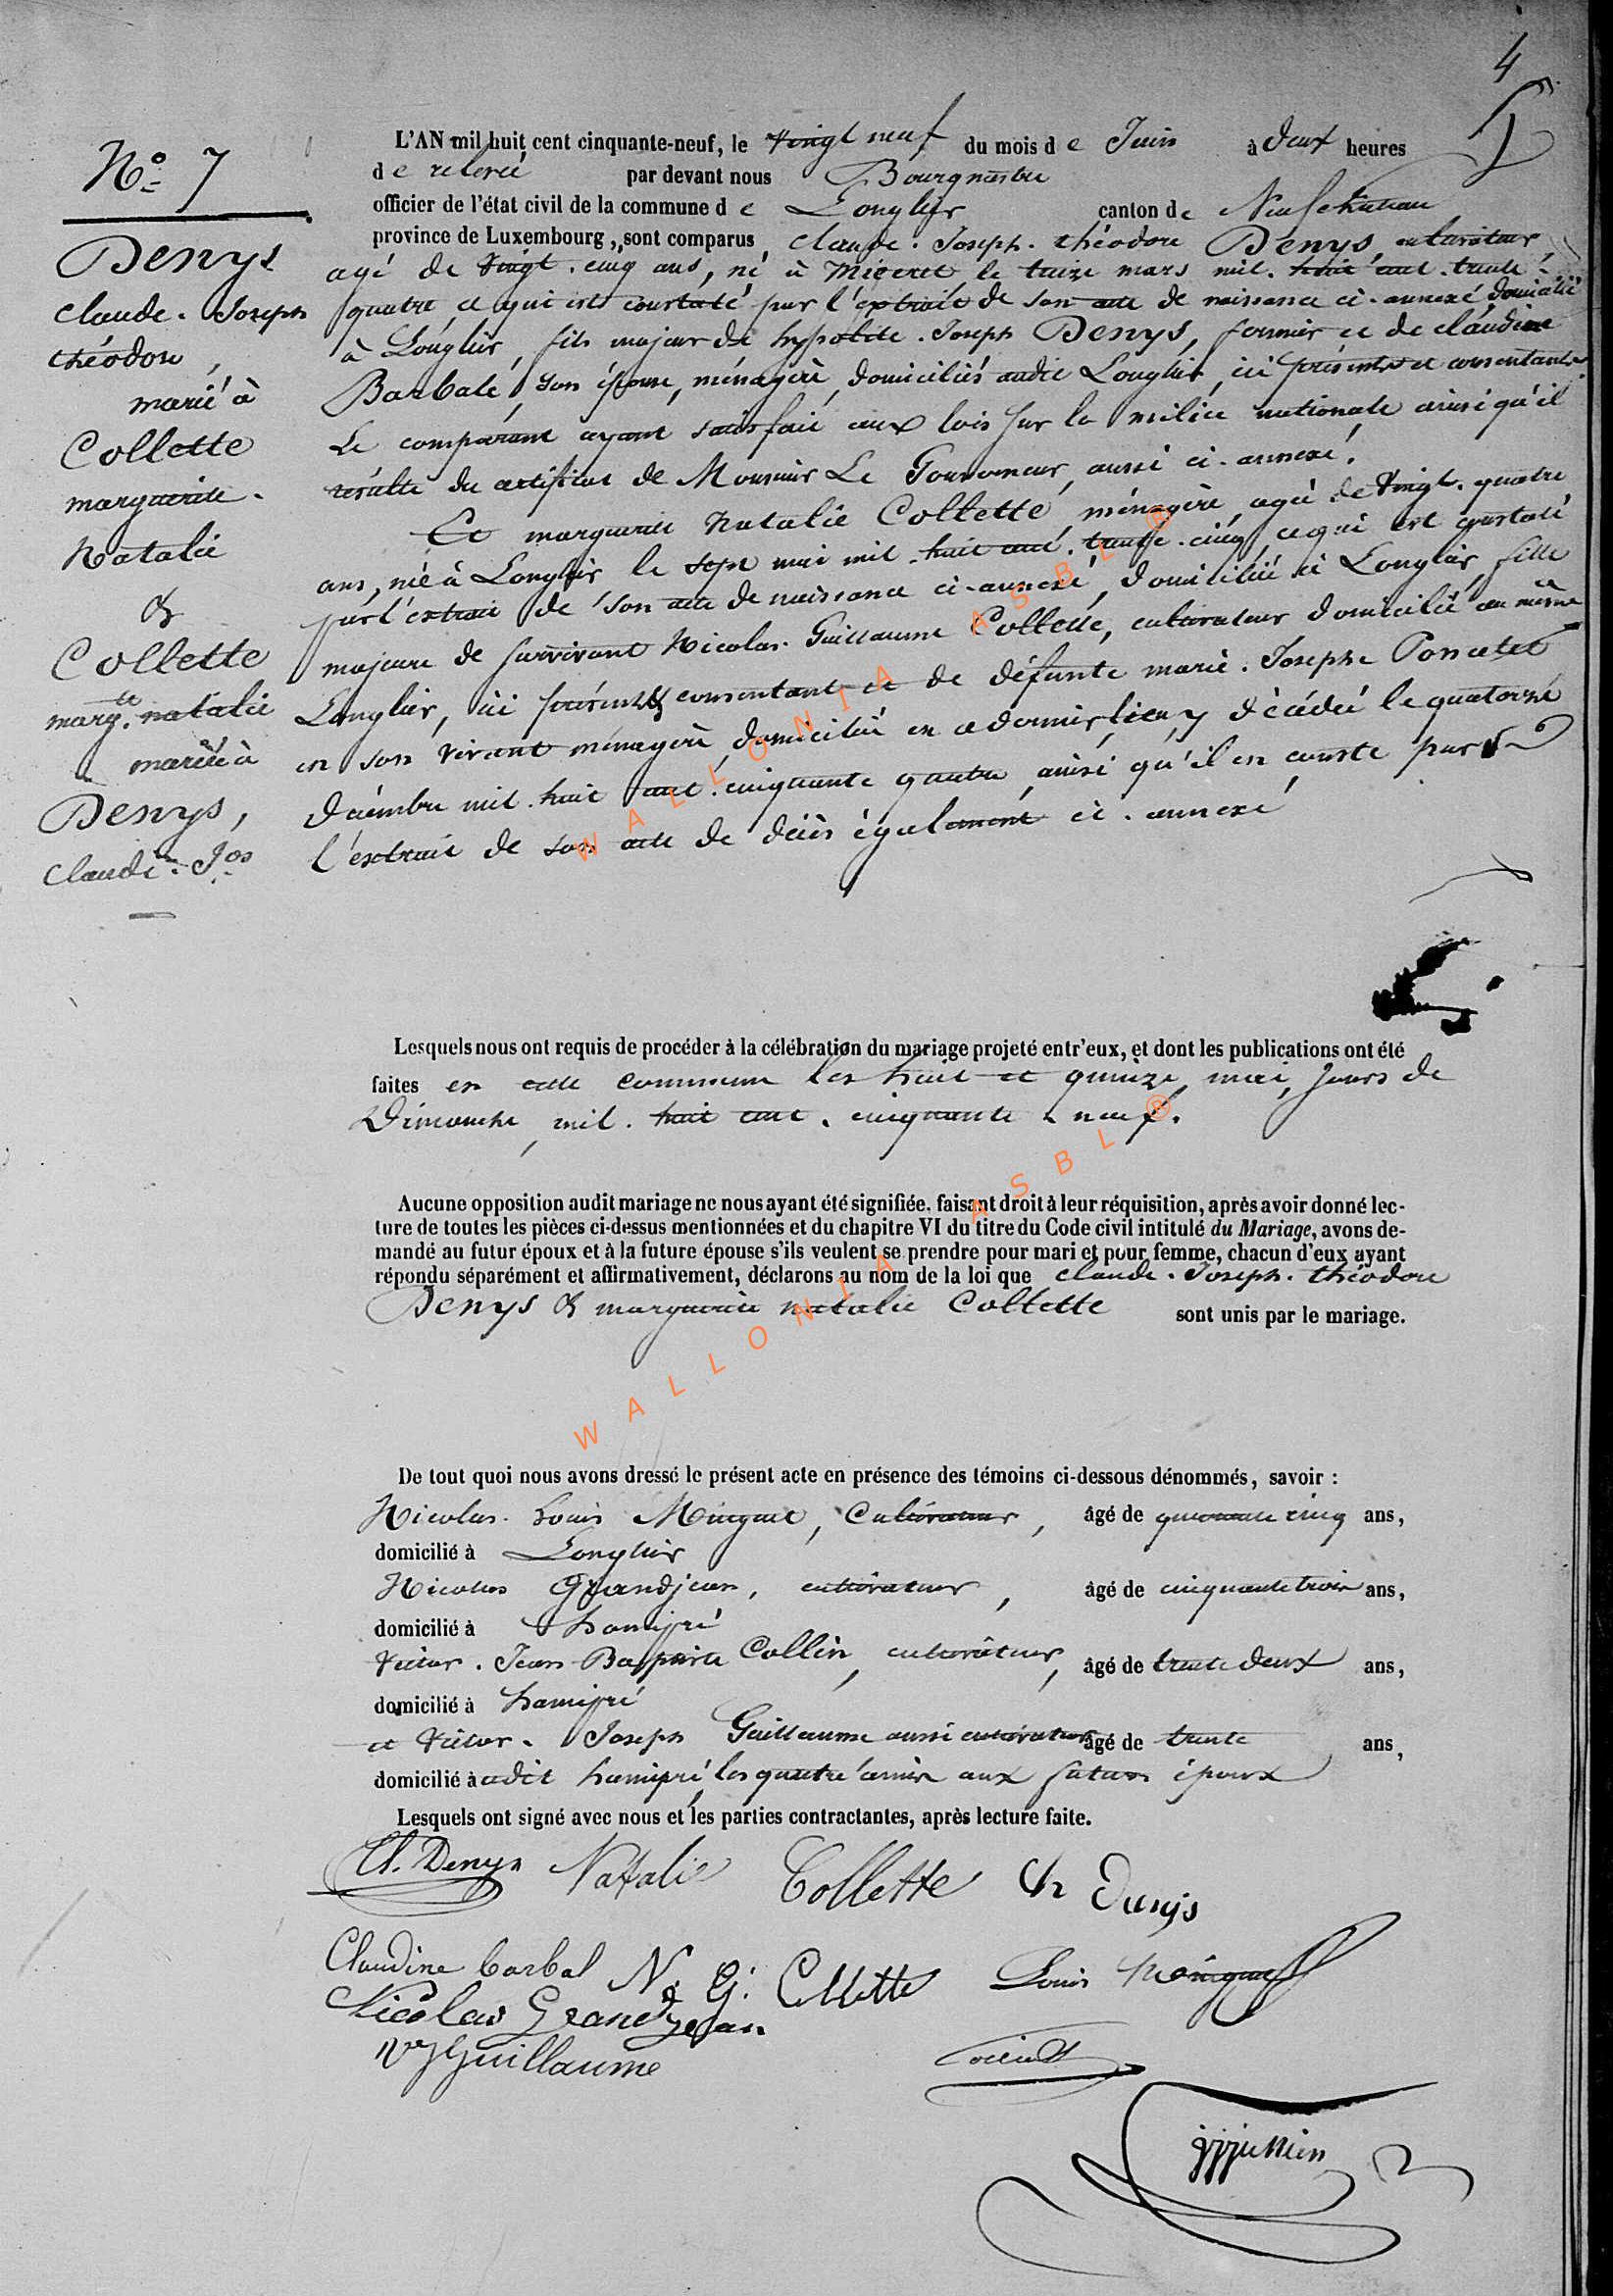 4
N° 7
Denys
Claude. Joseph
théodore,
marié à
Collette
marguerite.
Natalie
&
Collette
marg.te natalie
mariée à
Denys,
Claude. Jos
L'AN mil huit cent cinquante-neuf, le vingt neuf du mois de Juin à deux heures
de relevée par devant nous Bourgmestre
officier de l'état civil de la commune de Longlier canton de Neufchateau
province de Luxembourg, sont comparus, Claude. Joseph. théodore Denys, cultivateur
agé de vingt. cinq ans, né à le treize mars mil. huit cent. trente
quatre, ce qui est constaté par l'extrait de son acte de naissance ci-annexé, domicilié
à Longlier, fils majeur de hypolite. Joseph Denys, fermier et de claudine
Barbale, son épouse, ménagère, domiciliés audit Longlier, ici présents et consentants.
Le comparant ayant satisfait aux lois sur la milice nationale ainsi qu'il
résulte du certificat de Monsieur Le Gouverneur, aussi ci-annexé,
Et marguerite Natalie Collette, ménagère, agée de vingt. quatre
ans, née à Longlier le sept mai mil. huit cent. trente. cinq, ce qui est constaté
par l'extrait de son acte de naissance ci-annexé, domiciliée à Longlier, fille
majeure de survivant Nicolas. Guillaume Collette, cultivateur domicilié au même
Longlier, ici présent & consentant et de défunte marie. Josephe Poncelet
en son vivant ménagère, domiciliée en ce dernier lieu, y décédée le quatorze
décembre mil. huit cent. cinquante quatre, ainsi qu'il en conste par
l'extrait de son acte de décès également ci. annexé
Lesquels nous ont requis de procéder à la célébration du mariage projeté entr'eux, et dont les publications ont été
faites en cette commune les huit et quinze, mai, jours de
Dimanche, mil. huit cent. cinquante neuf.
Aucune opposition audit mariage ne nous ayant été signifiée. faisant droit à leur réquisition, après avoir donné lec-
ture de toutes les pièces ci-dessus mentionnées et du chapitre VI du titre du Code civil intitulé du Mariage, avons de-
mandé au futur époux et à la future épouse s'ils veulent se prendre pour mari et pour femme, chacun d'eux ayant
répondu séparément et affirmativement, déclarons au nom de la loi que Claude. Joseph. théodore
Denys & marguerite natalie Collette sont unis par le mariage.
De tout quoi nous avons dressé le présent acte en présence des témoins ci-dessous dénommés, savoir :
Nicolas. Louis Maignet, Cultivateur, âgé de quarante cinq ans,
domicilié à Longlier
Nicolas Grandjean, cultivateur, âgé de cinquante trois ans,
domicilié à hamipré
Victor. Jean Baptiste Collin, cultivateur, âgé de trente deux ans,
domicilié à hamipré
et Victor. Joseph Guillaume aussi cultivateur âgé de trente ans,
domicilié à audit hamipré, les quatre amis aux futurs époux
Lesquels ont signé avec nous et les parties contractantes, après lecture faite.
Cl. Denys Natalie Collette Denys
Claudine barbal N. G. Collette Louis
Nicolas Grandjean
VJ Guillaume
WALLONIA ASBL ®
WALLONIA ASBL ®